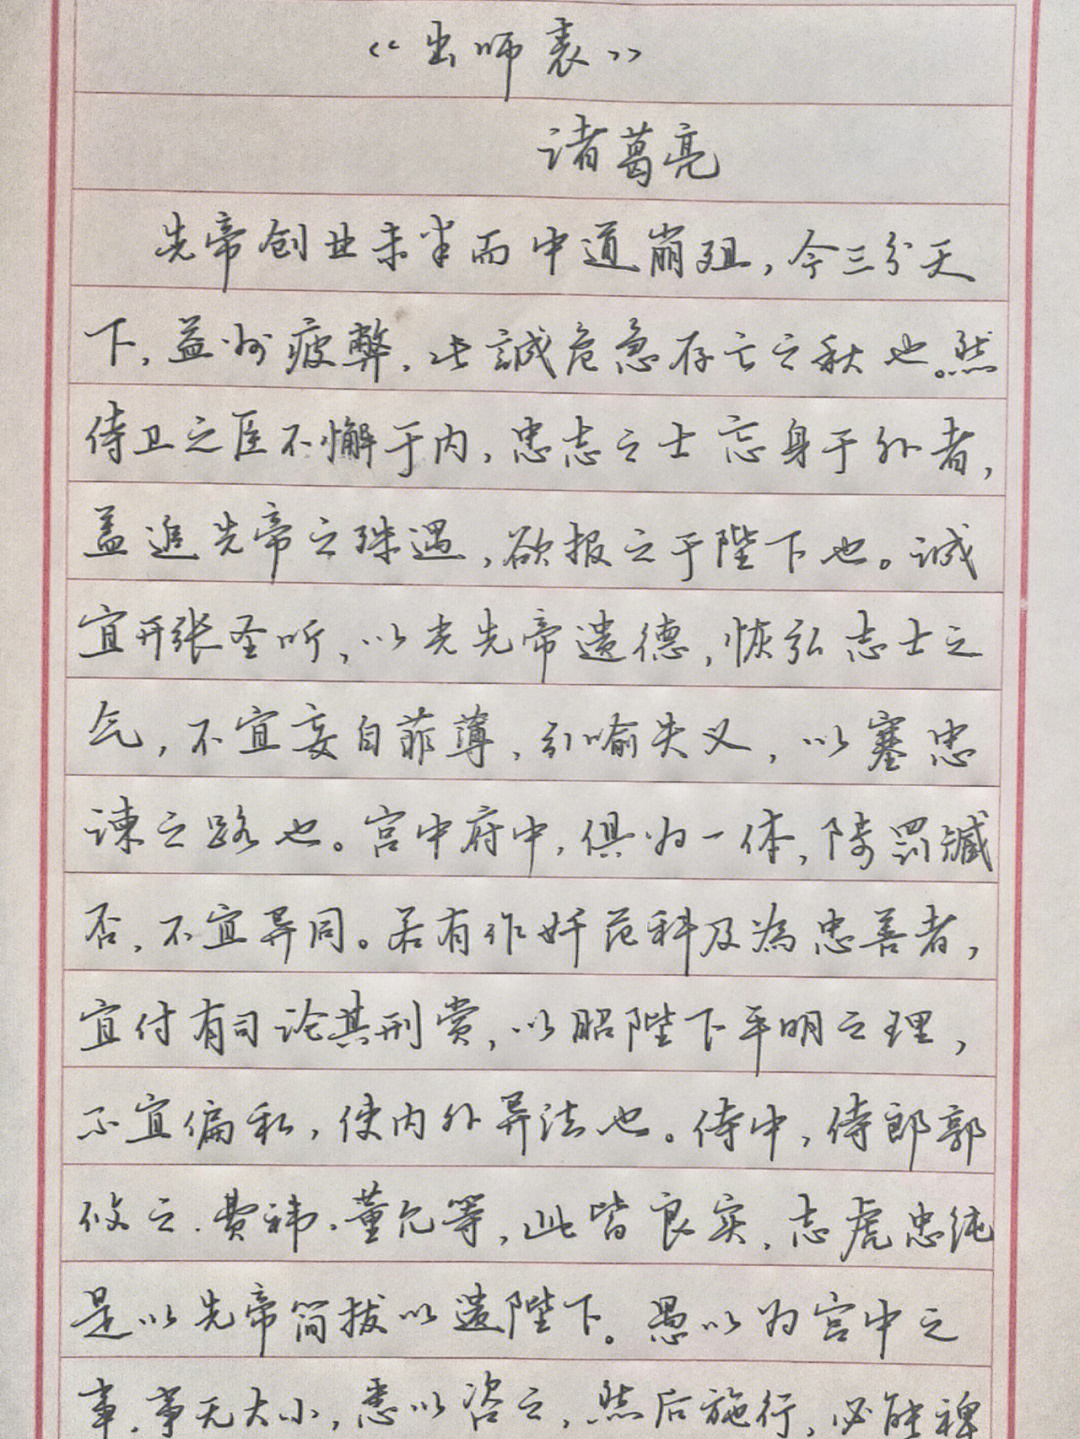 《出师表》
诸葛亮
先帝创业未半而中道崩殂,今三分天
下,益州疲弊,此誠危急存亡之秋也。然
侍卫之臣不懈于内,忠志之士忘身于外者,
盖追先帝之殊遇,欲报之于陛下也。诚
宜开张圣听,以光先帝遗德,恢弘志士之
气,不宜妄自菲薄,引喻失义,以塞忠
谏之路也。宫中府中,俱为一体,陟罚臧
否,不宜异同。若有作奸范科及為忠善者,
宜付有司论其刑赏,以昭陛下平明之理,
不宜偏私,使内外异法也。侍中,侍郎郭
攸之.费祎.董允等,此皆良实,志虑忠纯
是以先帝简拔以遗陛下。愚以为宫中之
事.事无大小,悉以咨之,然后施行,必能裨